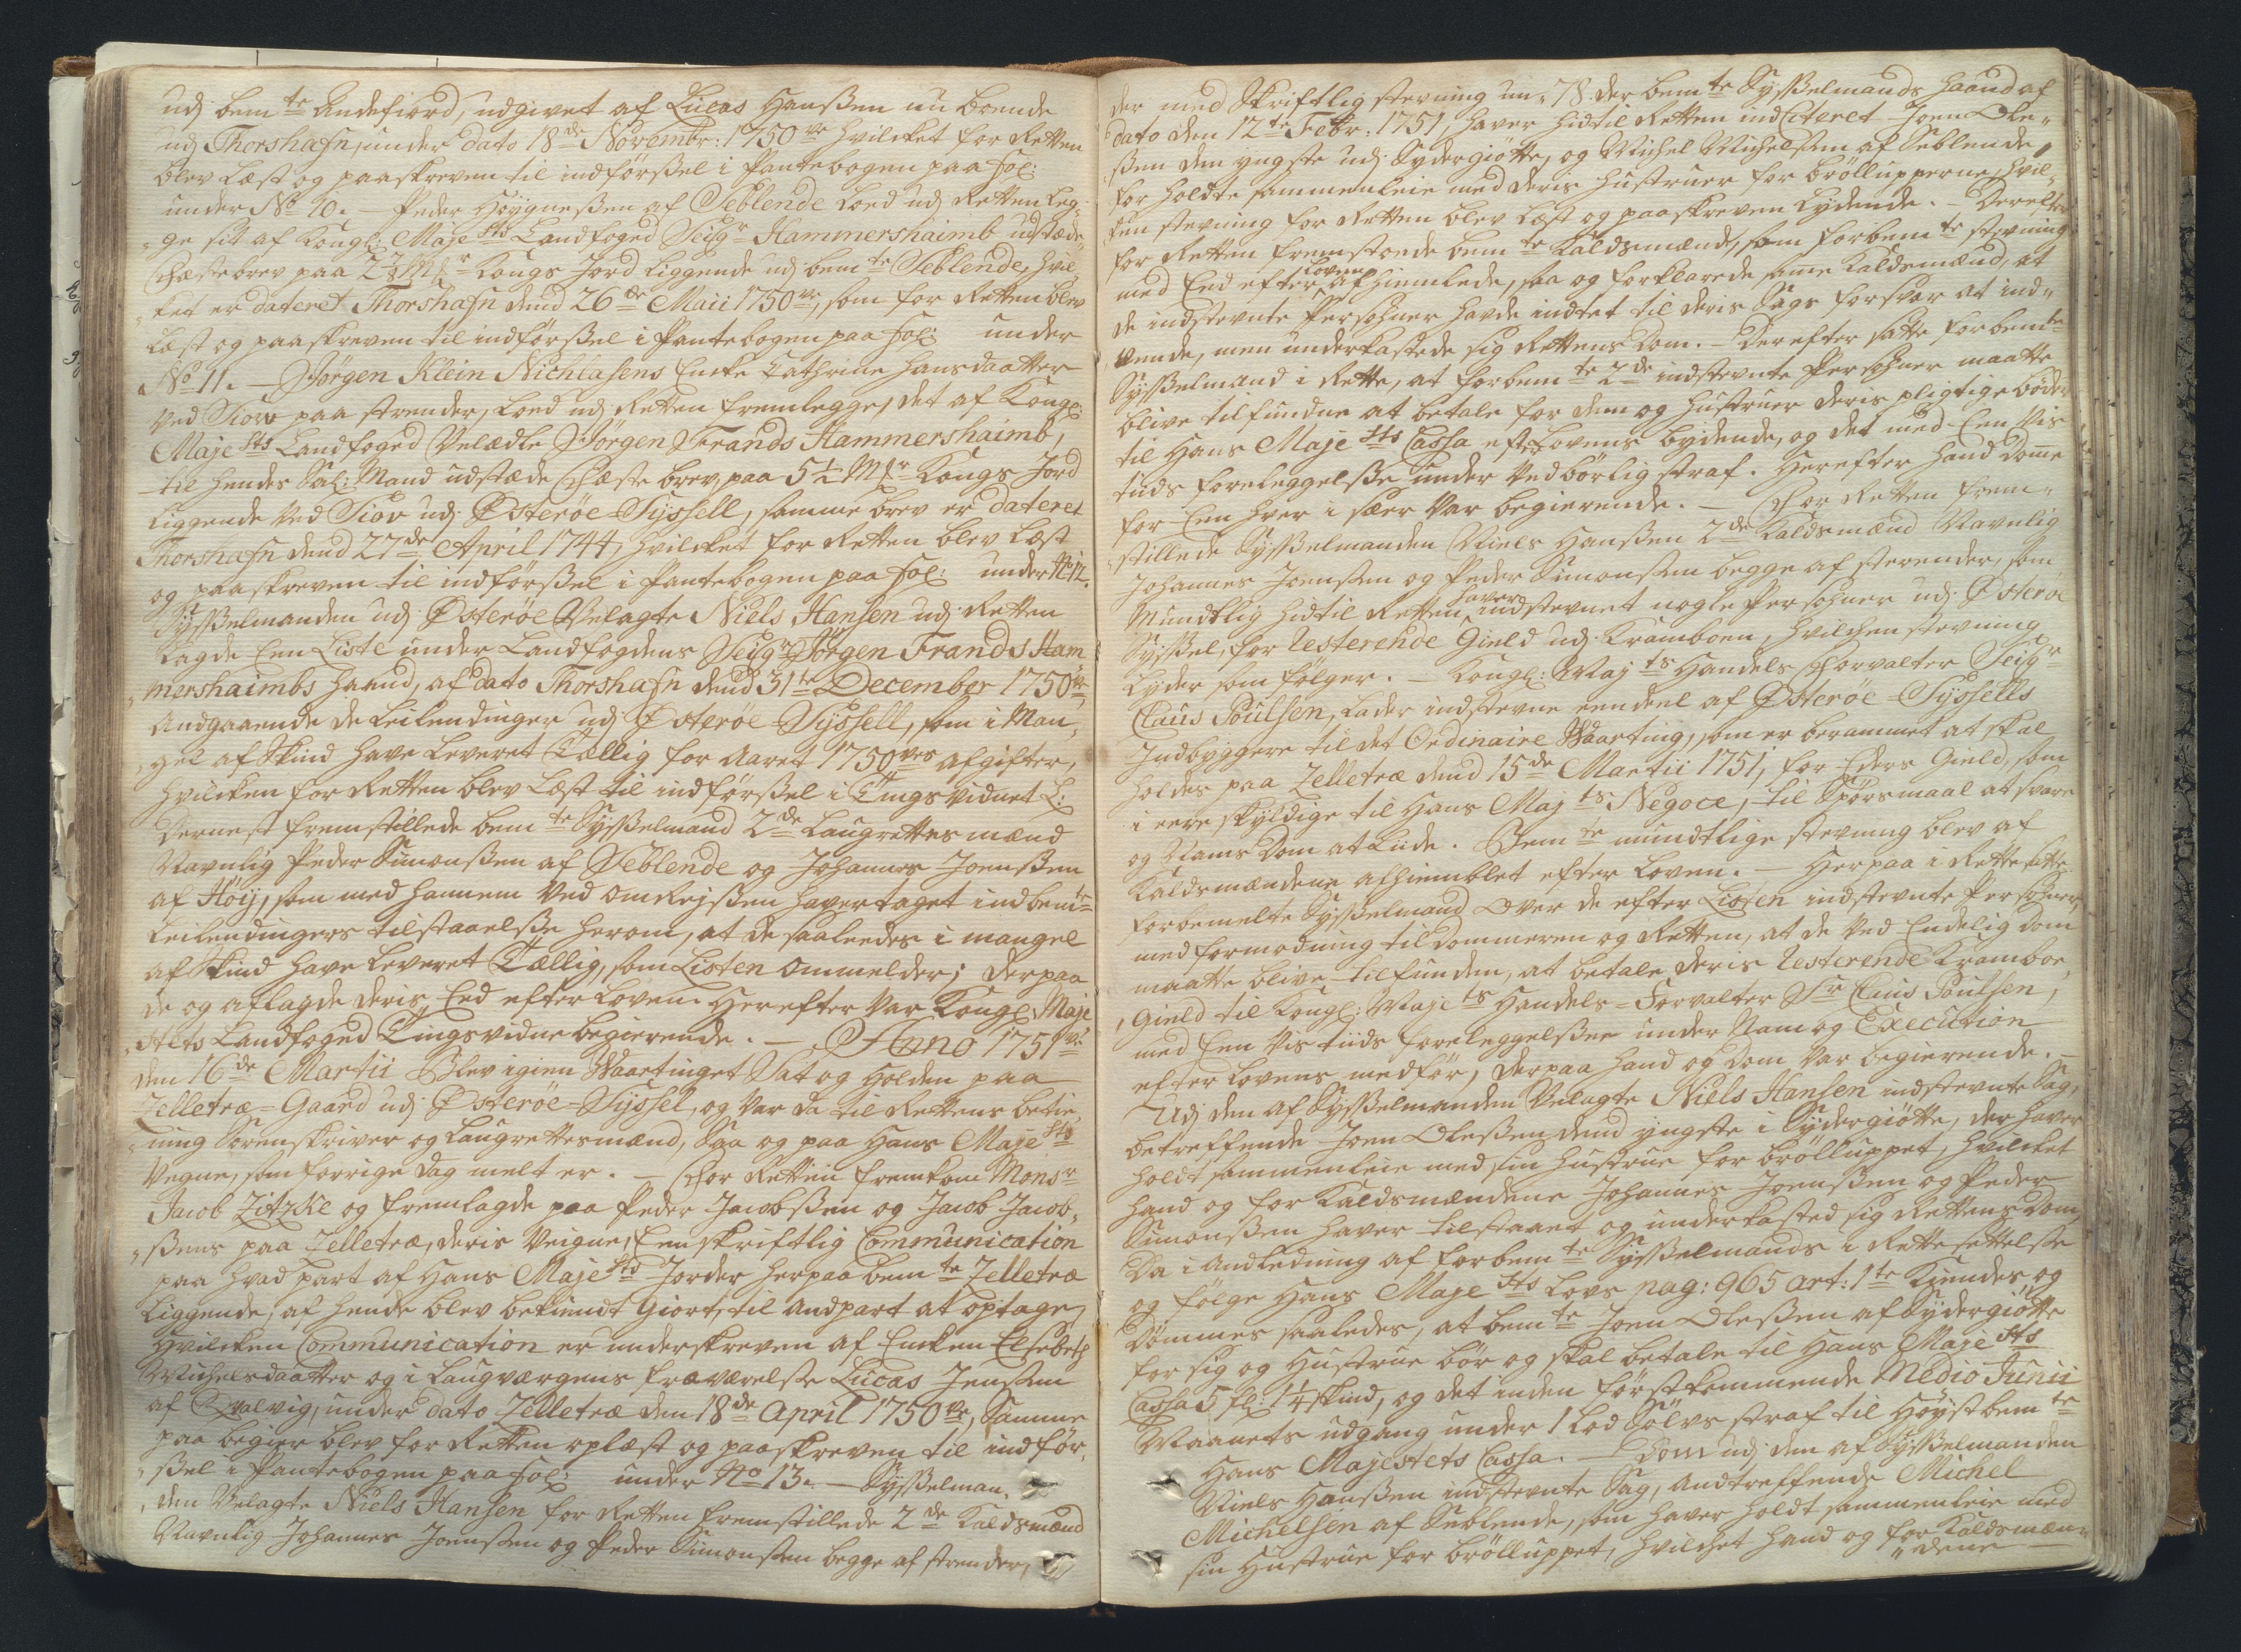 udj bem te Andefiord, udgivet af Lucas Hanßen nu boende
udj Thorshafn, under dato 18 de Novembr: 1750 ve hvilcket for Retten
blev læst og paaskreven til indförßel i Pantebogen paa fol:
under No 10. — Peder Höygneßen af Seblende loed udj Retten leg-
ge sit af Kongl: Maje sts Landfoged Seigr Hammershaimb udstæde
Fæstebrev paa Kongs Jord liggende udj bem te Seblende, hvil-
ket er dateret Thorshafn dend 26 de Maii 1750 ve, som for Retten blev
læst og paaskreven til indförßel i Pantebogen paa fol: under
No 11. — Jörgen Klein Nichlasens Encke Cathrine Hansdaatter
ved Siov paa strender, loed udj Retten fremlegge, det af Kongl:
Maje sts Landfoged Velædle Jörgen Frands Hammershaimb,
til hendes Sal: Mand udstæde Fæste brev, paa 5½ Mkr Kongs Jord
liggende ved Siov udj Österöe-Syssell, samme brev er dateret
Thorshafn dend 27 de April 1744, hvilcket for Retten blev læst
og paaskreven til indförßel i Pantebogen paa fol: under No 12.
Sysßelmanden udj Österöe Velagte Niels Hansen udj Retten
lagde Een Liste under Landfogdens Seigr Jörgen Frands Ham
mershaimbs haand, af dato Thorshafn dend 31 te December 1750 ve,
Andgaaende de Leilendinger udj Österöe-Syssell, som i Man-
gel af Skind have leveret Tællig for Aaret 1750 ves afgifter,
hvilcken for Retten blev læst til indförßel i Tingsvidnet L:
Dernest fremstillede bem te Sysßelmand 2 de Laugrettes mænd
Navnlig Peder Simonßen af Seblende og Johannes Joenßen
af Höyj, som med hannem ved omReyßen haver taget ind bem te
Leilendingers tilstaaelße herom, at de saaleedes i mangel
af Skind have leveret Tællig, som Listen ommelder; derpaa
de og aflagde deris Eed efter loven. Herefter var Kongl: Maje
stets Landfoged Tingsvidne begierende. — Anno 1751 ve
den 16 de Martii Blev igien Waartinget Sat og Holden paa
Zelletræ-Gaard udj Österöe-Syssel, og var da til Rettens betie-
ning Sorenskriver og Laugrettesmænd, Saa og paa Hans Maje sts
Vegne, som forrige dag melt er. — For Retten fremkom Monsr
Jacob Zitzke og fremlagde paa Peder Jacobßen og Jacob Jacob-
ßens paa Zelletræ, deris Veigne, Een skriftlig Communication
paa hvad part af Hans Maje sts Jorder herpaa bem te Zelletræ
liggende, af hende blev bekiendt giort, til andpart at optage,
hvilcken Communication er underskreven af Encken Elsebeth
Michelsdaatter og i Laugværgens fraværelße Lucas Jenßen
af Qvalvig, under dato Zelletræ den 18 de April 1750 ve, Samme
paa begier blev for Retten oplæst og paaskreven til indför-
ßel i Pantebogen paa fol: under No 13. — Sysßelman-
den Velagte Niels Hansen for Retten fremstillede 2 de Kaldsmænd
Navnlig Johannes Joenßen og Peder Simonßen begge af strender,
der med Skriftlig stevning un- 78. der bem te Sysßelmands haand af
dato den 12 te Febr: 1751, haver hidtil Retten indCiteret Joen Ole-
ßen den yngste udj Sydergiötte, og Michel Michelßen af Seblende,
for holdte sammenleie med deris hustruer for brölluppene, hvil-
ken stevning for Retten blev læst og paaskreven lydende. — Derefter
for Retten fremstoede bem te Kaldsmænd, som forbem te stevning
med Eed efter Loven afhiemlede, saa og forklarede same Kaldsmænd, at
de indstevnte Persohner havde indtet til deris Sags forsvar at ind-
vende, men underkastede sig Rettens Dom. — Derefter satte forbem te
Sysßelmand i Rette, at forbem te 2 de indstevnte Persohner maatte
blive tilfundne at betale for dem og hustruer deris pligtige böder
til Hans Maje sts Cassa efter Lovens bydende, og det med Een vis
tids foreleggelße under vedbörlig straf. Herefter hand Dome
for Een hver i sær var begierende. — For Retten frem-
stillede Sysßelmanden Niels Hanßen 2 de Kaldsmænd Navnlig
Johannes Joenßen og Peder Simonßen begge af strender, som
Mundtlig hidtil Retten haver indstevnet nogle Persohner udj Österöe
Syßel, for resterende Gield udj Kramboen, hvilchen stevning
lyder som fölger. — Kongl: May ts Handels Forvalter Seigr
Claus Poulsen, lader indstevne eendeel af Österöe-Syssells
Indbyggere til det Ordinaire Waarting, som er berammet at skal
holdes paa Zelletræ dend 15 de Martii 1751, for Eders Gield, som
i ere skyldige til Hans May ts Negoce, til Spörsmaal at svare
og Nams Dom at liide. Bem te mundtlige stevning blev af
Kaldsmændene afhiemblet efter Loven. — Herpaa i Rette satte
forbemelte Sysßelmand Over de efter Listen indstevnte Persohner,
med formodning til dommeren og Retten, at de ved Endelig dom
maatte blive tilfunden, at betale deris resterende Kramboe-
Gield til Kongl: Maje ts Handels-Forvalter Sr Claus Poulsen,
med Een vis tiids foreleggelßer under Nam og Execution
efter Lovens medför, derpaa hand og Dom var begierende. —
Udj den af Sysßelmanden Velagte Niels Hansen indstevnte Sag,
betreffende Joen Oleßen dend yngste i Sydergiötte, der haver
holdt sammenleie med sin hustrue for brölluppet, hvilcket
hand og for Kaldsmændene Johannes Joenßen og Peder
Simonßen haver tilstaaet og underkasted sig Rettens Dom,
Da i Andledning af forbem te Sysßelmands i Rettesettelße
og fölge Hans Maje sts Lovs pag: 965 art: 1 te Kiendes og
Dömmes saaledes, at bem te Joen Oleßen af Sydergiötte
for sig og Hustrue bör og skal betale til Hans Maje sts
Cassa 5 fl: 1¼ skind, og det inden först kommende Medio Junii
Maanets udgang under 1 Lod Sölvs straf til Höystbem te
Hans Majestets Cassa. — Dom udj den af Sysßelmanden
Niels Hanßen indstevnte Sag, andtreffende Michel
Michelsen af Seblende, som haver holdt sammenleie med
sin Hustrue for brölluppet, hvilchet hand og for Kaldsmæn-
dene